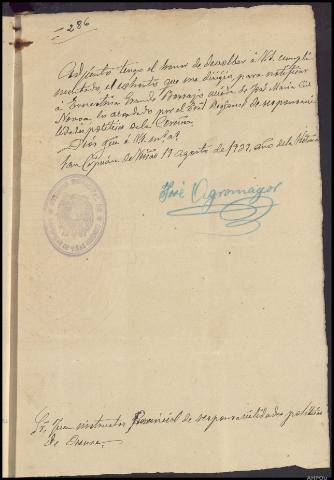 286
Adjunto tengo el honor de devolver á Vd. cumpli
mentado, el exhorto que me dirigió para notificar
á Ernestina Borrajo viuda de José María Cid
Novoa, lo acordado por el Trib. Regional de responsabi
lidades políticas de la Coruña.
Dios gue á Vd. m. a.
San Ciprián de Viñas 19 Agosto de 1939. Año de la Victoria
José Agromayor
Sr. Juez instructor Provincial de responsabilidades políticas
de Orense.
AHPOU